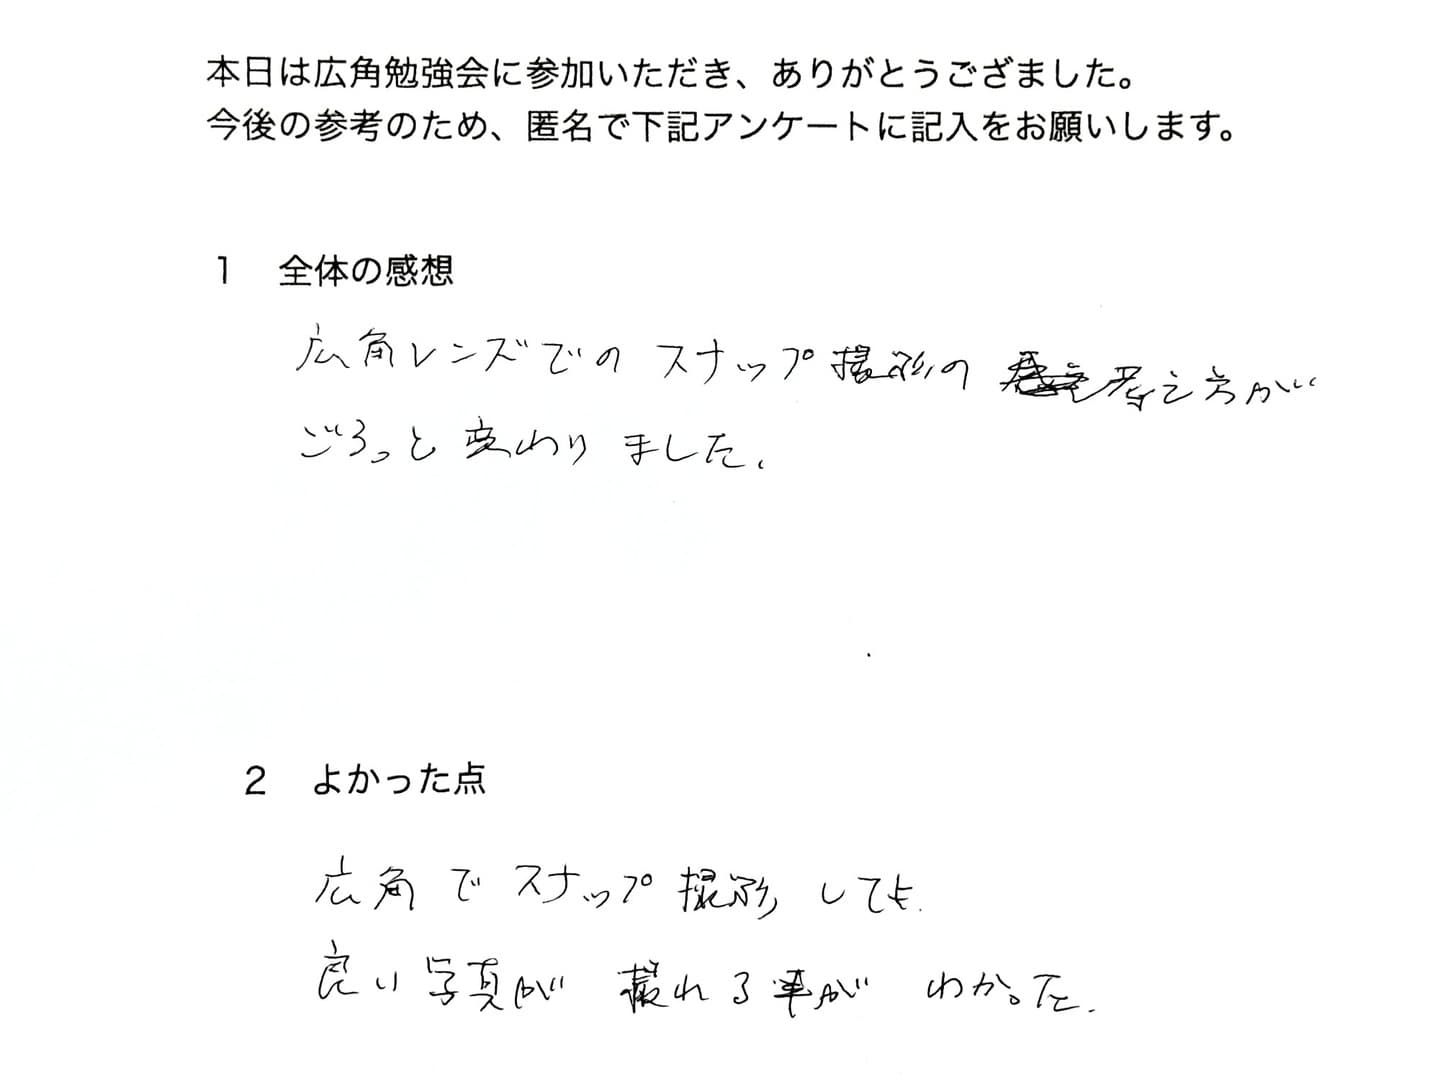 本日は広角勉強会に参加いただき、ありがとうござました。
今後の参考のため、匿名で下記アンケートに記入をお願いします。
1 全体の感想
広角レンズでのスナップ撮影の考え方が
ごろっと変わりました.
2 よかった点
広角でスナップ撮影しても
良い写真が撮れる事がわかった.